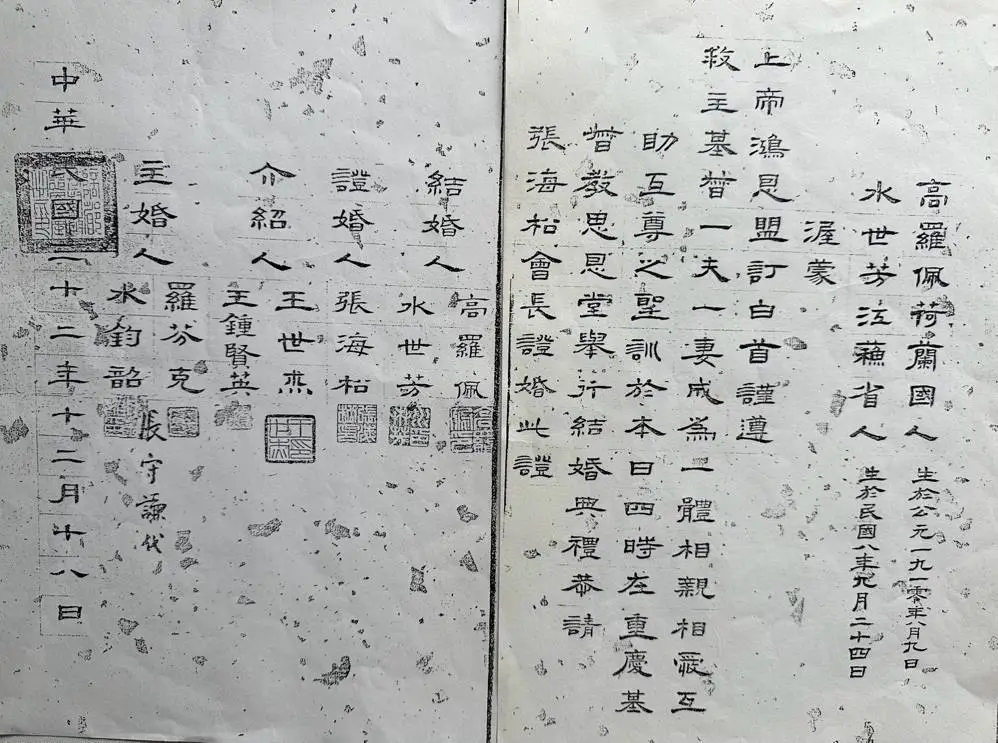 高羅佩荷蘭國人 生於公元一九一零年八月九日
水世芳江蘇省人 生於民國八年九月二十四日
渥蒙
上帝鴻恩盟訂白首謹遵
救主基督一夫一妻成為一體相親相愛互
助互尊之聖訓於本日四時在重慶基
督教思恩堂舉行結婚典禮恭請
張海松會長證婚此證
結婚人
高羅佩
水世芳
證婚人
張海松
介紹人
王世杰
王鍾賢英
主婚人
羅芬克
張守謙代
水鈞韶
中華民國三十二年十二月十八日